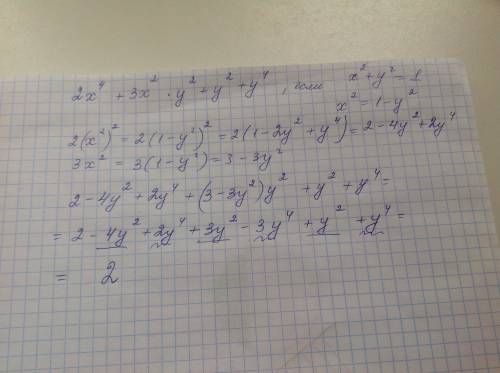 2x⁴ + 3x² · y² + y² + y⁴, если x² + y² = 1
x² = 1 - y²
2(x²)² = 2(1 - y²)² = 2(1 - 2y² + y⁴) = 2 - 4y² + 2y⁴
3x² = 3(1 - y²) = 3 - 3y²
2 - 4y² + 2y⁴ + (3 - 3y²)y² + y² + y⁴ =
= 2 - 4y² + 2y⁴ + 3y² - 3y⁴ + y² + y⁴ =
= 2